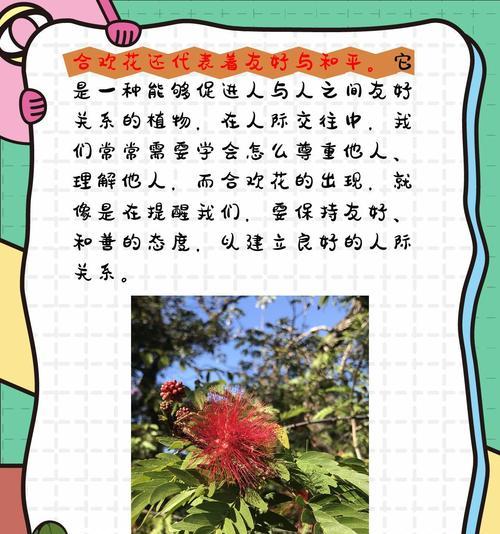 合欢花还代表着友好与和平。它
是一种能够促进人与人之间友好
关系的植物，在人际交往中，我
们常常需要学会怎么尊重他人、
理解他人，而合欢花的出现，就
像是在提醒我们，要保持友好、
和善的态度，以建立良好的人际
关系。